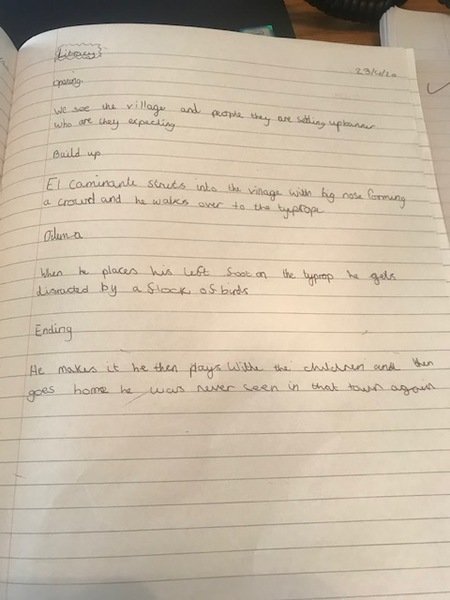 Literacy
23/4/20
Opening.
We see the village and people they are setting up banner
who are they expecting
Build up
El caminante struts into the village with big nose forming
a crowd and he walks over to the tyrope
Dilema
When he places his left foot on the tyrop he gets
distracted by a flock of birds
Ending
He makes it he then plays withe the children and then
goes home he was never seen in that town again